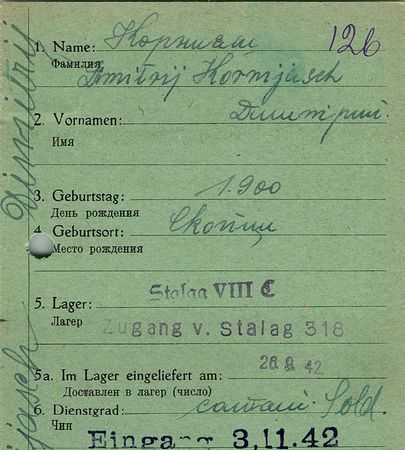 126
1. Name: Корниаш
Фамилия
Dmitrij Kornijasch
2. Vornamen: Дмитрий.
Имя
3. Geburtstag: 1.900
День рождения
4. Geburtsort:
Место рождения
Stalag VIII C
5. Lager:
Лагер
Zugang v. Stalag 318
26.9.42
5a. Im Lager eingeliefert am:
Доставлен в лагер (число)
6. Dienstgrad: Sold.
Чин
Eingang 3.11.42
Dimitrij
jasch